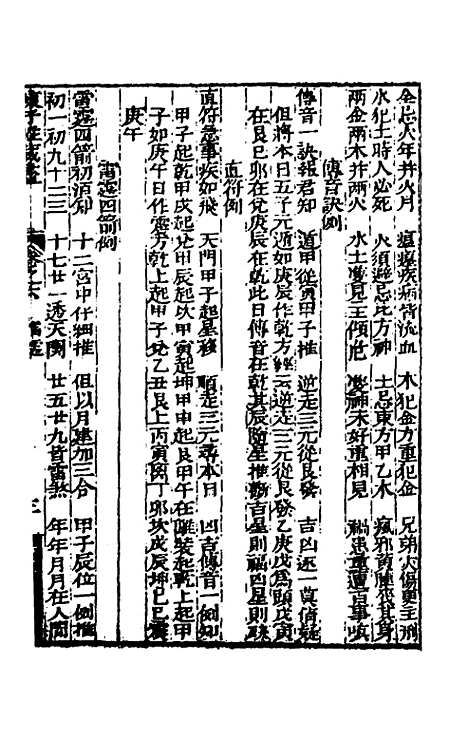 金忌火年并火月 瘟㾮疾病皆流血 木犯金方重犯金 兄弟火傷更主刑
水犯土時人必死 火須避忌北方神 土忌東方甲乙木 瘋邪黃腫喪其身
兩金兩木并兩火 水土變見主傾危 神未好重相見 禍患重遭百事嗔
傳音訣例
傳音一訣報君知 遁甲從寅甲子推 逆走三元從艮發 吉凶还一莫猜疑
但將本日五子元遁如庚辰作乾方 云逆走三元從艮發乙庚戊爲頭戊寅
在艮己卯在兌庚辰在乾此日傳音在乾其辰 星推 吉星則福凶星則殃
直符例
直符急事疾如飛 天門甲子起星移 順走三元尋本日 凶吉傳音一例知
甲子起乾甲戌起兌甲辰起坎甲寅起坤甲申起艮甲午在離裝起乾上起甲
子如庚午日作震方乾上起甲子兌乙丑艮上丙寅離丁卯坎戊辰坤己巳震
庚午
雷霆四箭例
雷霆四箭初須知 十二宮中仔細推 但以月建加三合 甲子辰位一例推
初一初九十二三 十七廿一透天関 廿五廿九皆雷煞 年年月月在人間
三